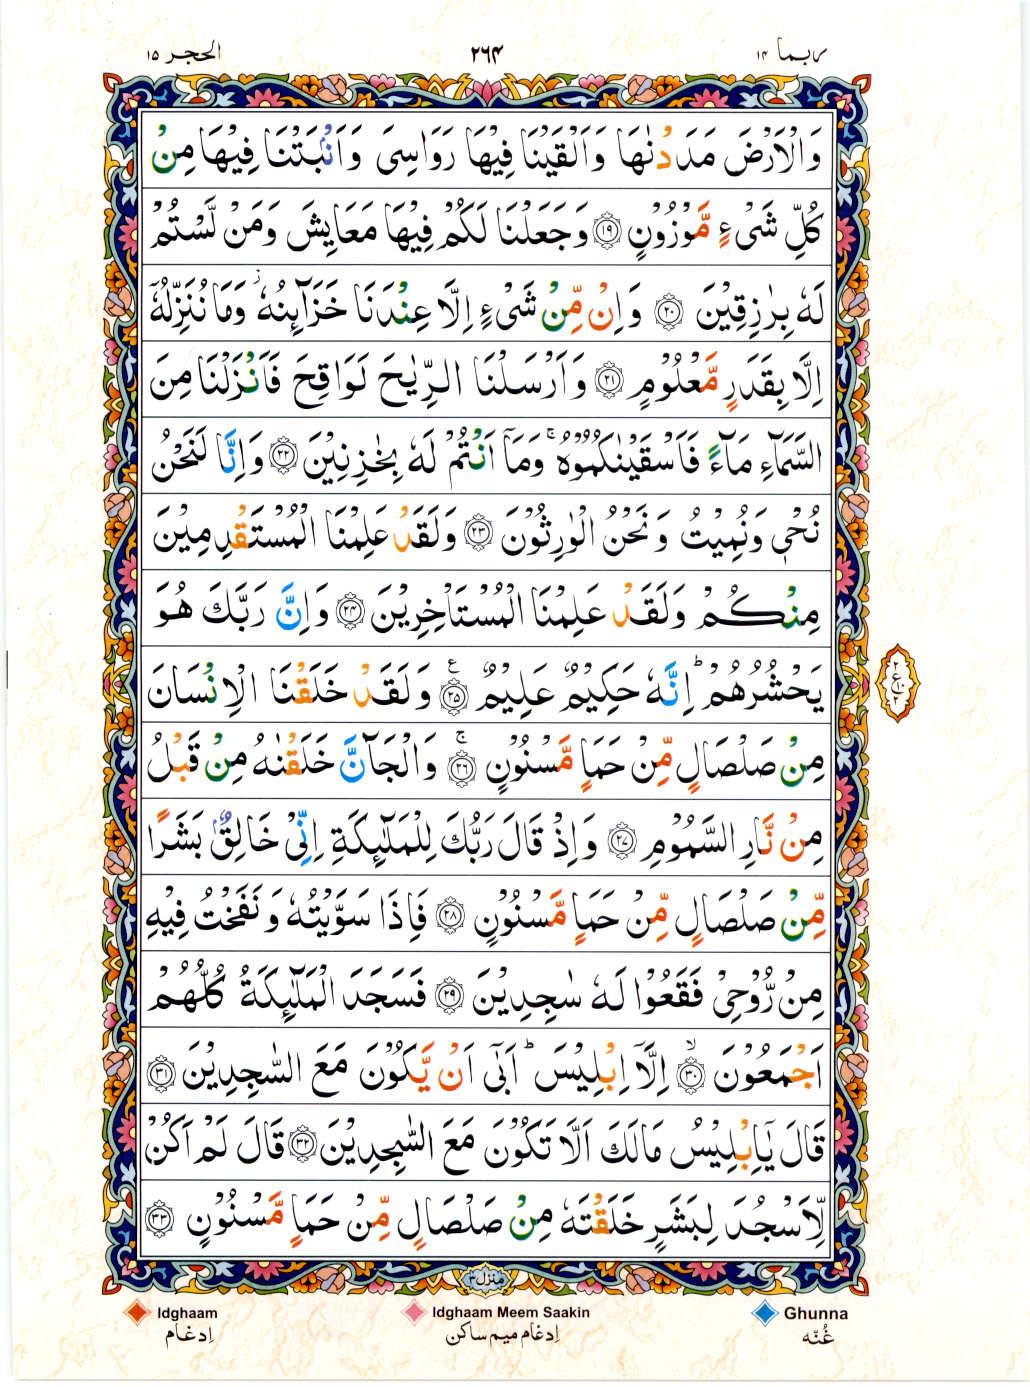 ربما ۱۴
۲۶۴
الحجر ۱۵
وَالْاَرْضَ مَدَدْنٰهَا وَاَلْقَيْنَا فِيْهَا رَوَاسِىَ وَاَنْۢبَتْنَا فِيْهَا مِنْ
كُلِّ شَىْءٍ مَّوْزُوْنٍ ۱۹ وَجَعَلْنَا لَكُمْ فِيْهَا مَعَايِشَ وَمَنْ لَّسْتُمْ
لَهٗ بِرٰزِقِيْنَ ۲۰ وَاِنْ مِّنْ شَىْءٍ اِلَّا عِنْدَنَا خَزَآئِنُهٗ ز وَمَا نُنَزِّلُهٗٓ
اِلَّا بِقَدَرٍ مَّعْلُوْمٍ ۲۱ وَاَرْسَلْنَا الرِّيٰحَ لَوَاقِحَ فَاَنْزَلْنَا مِنَ
السَّمَآءِ مَآءً فَاَسْقَيْنٰكُمُوْهُ ۚ وَمَآ اَنْتُمْ لَهٗ بِخٰزِنِيْنَ ۲۲ وَاِنَّا لَنَحْنُ
نُحْىٖ وَنُمِيْتُ وَنَحْنُ الْوٰرِثُوْنَ ۲۳ وَلَقَدْ عَلِمْنَا الْمُسْتَقْدِمِيْنَ
مِنْكُمْ وَلَقَدْ عَلِمْنَا الْمُسْتَاْخِرِيْنَ ۲۴ وَاِنَّ رَبَّكَ هُوَ
يَحْشُرُهُمْ ؕ اِنَّهٗ حَكِيْمٌ عَلِيْمٌ ۲۵ ع وَلَقَدْ خَلَقْنَا الْاِنْسَانَ
مِنْ صَلْصَالٍ مِّنْ حَمَاٍ مَّسْنُوْنٍ ۲۶ ۚ وَالْجَآنَّ خَلَقْنٰهُ مِنْ قَبْلُ
مِنْ نَّارِ السَّمُوْمِ ۲۷ وَاِذْ قَالَ رَبُّكَ لِلْمَلٰٓئِكَةِ اِنِّىْ خَالِقٌۢ بَشَرًا
مِّنْ صَلْصَالٍ مِّنْ حَمَاٍ مَّسْنُوْنٍ ۲۸ فَاِذَا سَوَّيْتُهٗ وَنَفَخْتُ فِيْهِ
مِنْ رُّوْحِىْ فَقَعُوْا لَهٗ سٰجِدِيْنَ ۲۹ فَسَجَدَ الْمَلٰٓئِكَةُ كُلُّهُمْ
اَجْمَعُوْنَ ۳۰ ۙ اِلَّآ اِبْلِيْسَ ؕ اَبٰٓى اَنْ يَّكُوْنَ مَعَ السّٰجِدِيْنَ ۳۱
قَالَ يٰٓاِبْلِيْسُ مَالَكَ اَلَّا تَكُوْنَ مَعَ السّٰجِدِيْنَ ۳۲ قَالَ لَمْ اَكُنْ
لِّاَسْجُدَ لِبَشَرٍ خَلَقْتَهٗ مِنْ صَلْصَالٍ مِّنْ حَمَاٍ مَّسْنُوْنٍ ۳۳
منزل ۳
Idghaam
Idghaam Meem Saakin
Ghunna
اِدغام
اِدغام میم ساکن
غُنّه